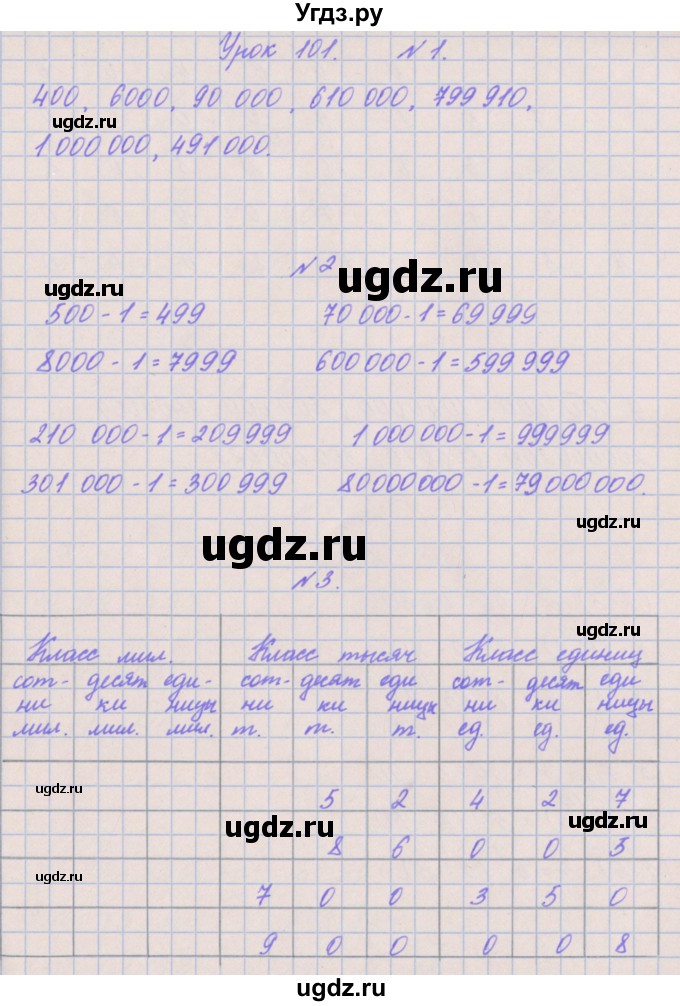 Угдз.ру
Урок 101. №1.
400, 6000, 90 000, 610 000, 799 910,
ugdz.ru
1 000 000, 491 000.
№2
ugdz.ru
ugdz.ru
500 - 1 = 499 70 000 - 1 = 69 999
8000 - 1 = 7999 600 000 - 1 = 599 999
210 000 - 1 = 209 999 1 000 000 - 1 = 999999
301 000 - 1 = 300 999 80000000 - 1 = 79 000 000.
ugdz.ru
ugdz.ru
№3.
ugdz.ru
Класс мил. Класс тысяч Класс единиц
сот- десят еди- сот- десят еди сот- десят еди
ни ки ницы ни ки ницы ни ки ницы
мил. мил. мил. т. т. т. ед. ед. ед.
ugdz.ru
5 2 4 2 7
ugdz.ru ugdz.ru
8 6 0 0 3
ugdz.ru
7 0 0 3 5 0
9 0 0 0 0 8
ugdz.ru
Угдз.ру